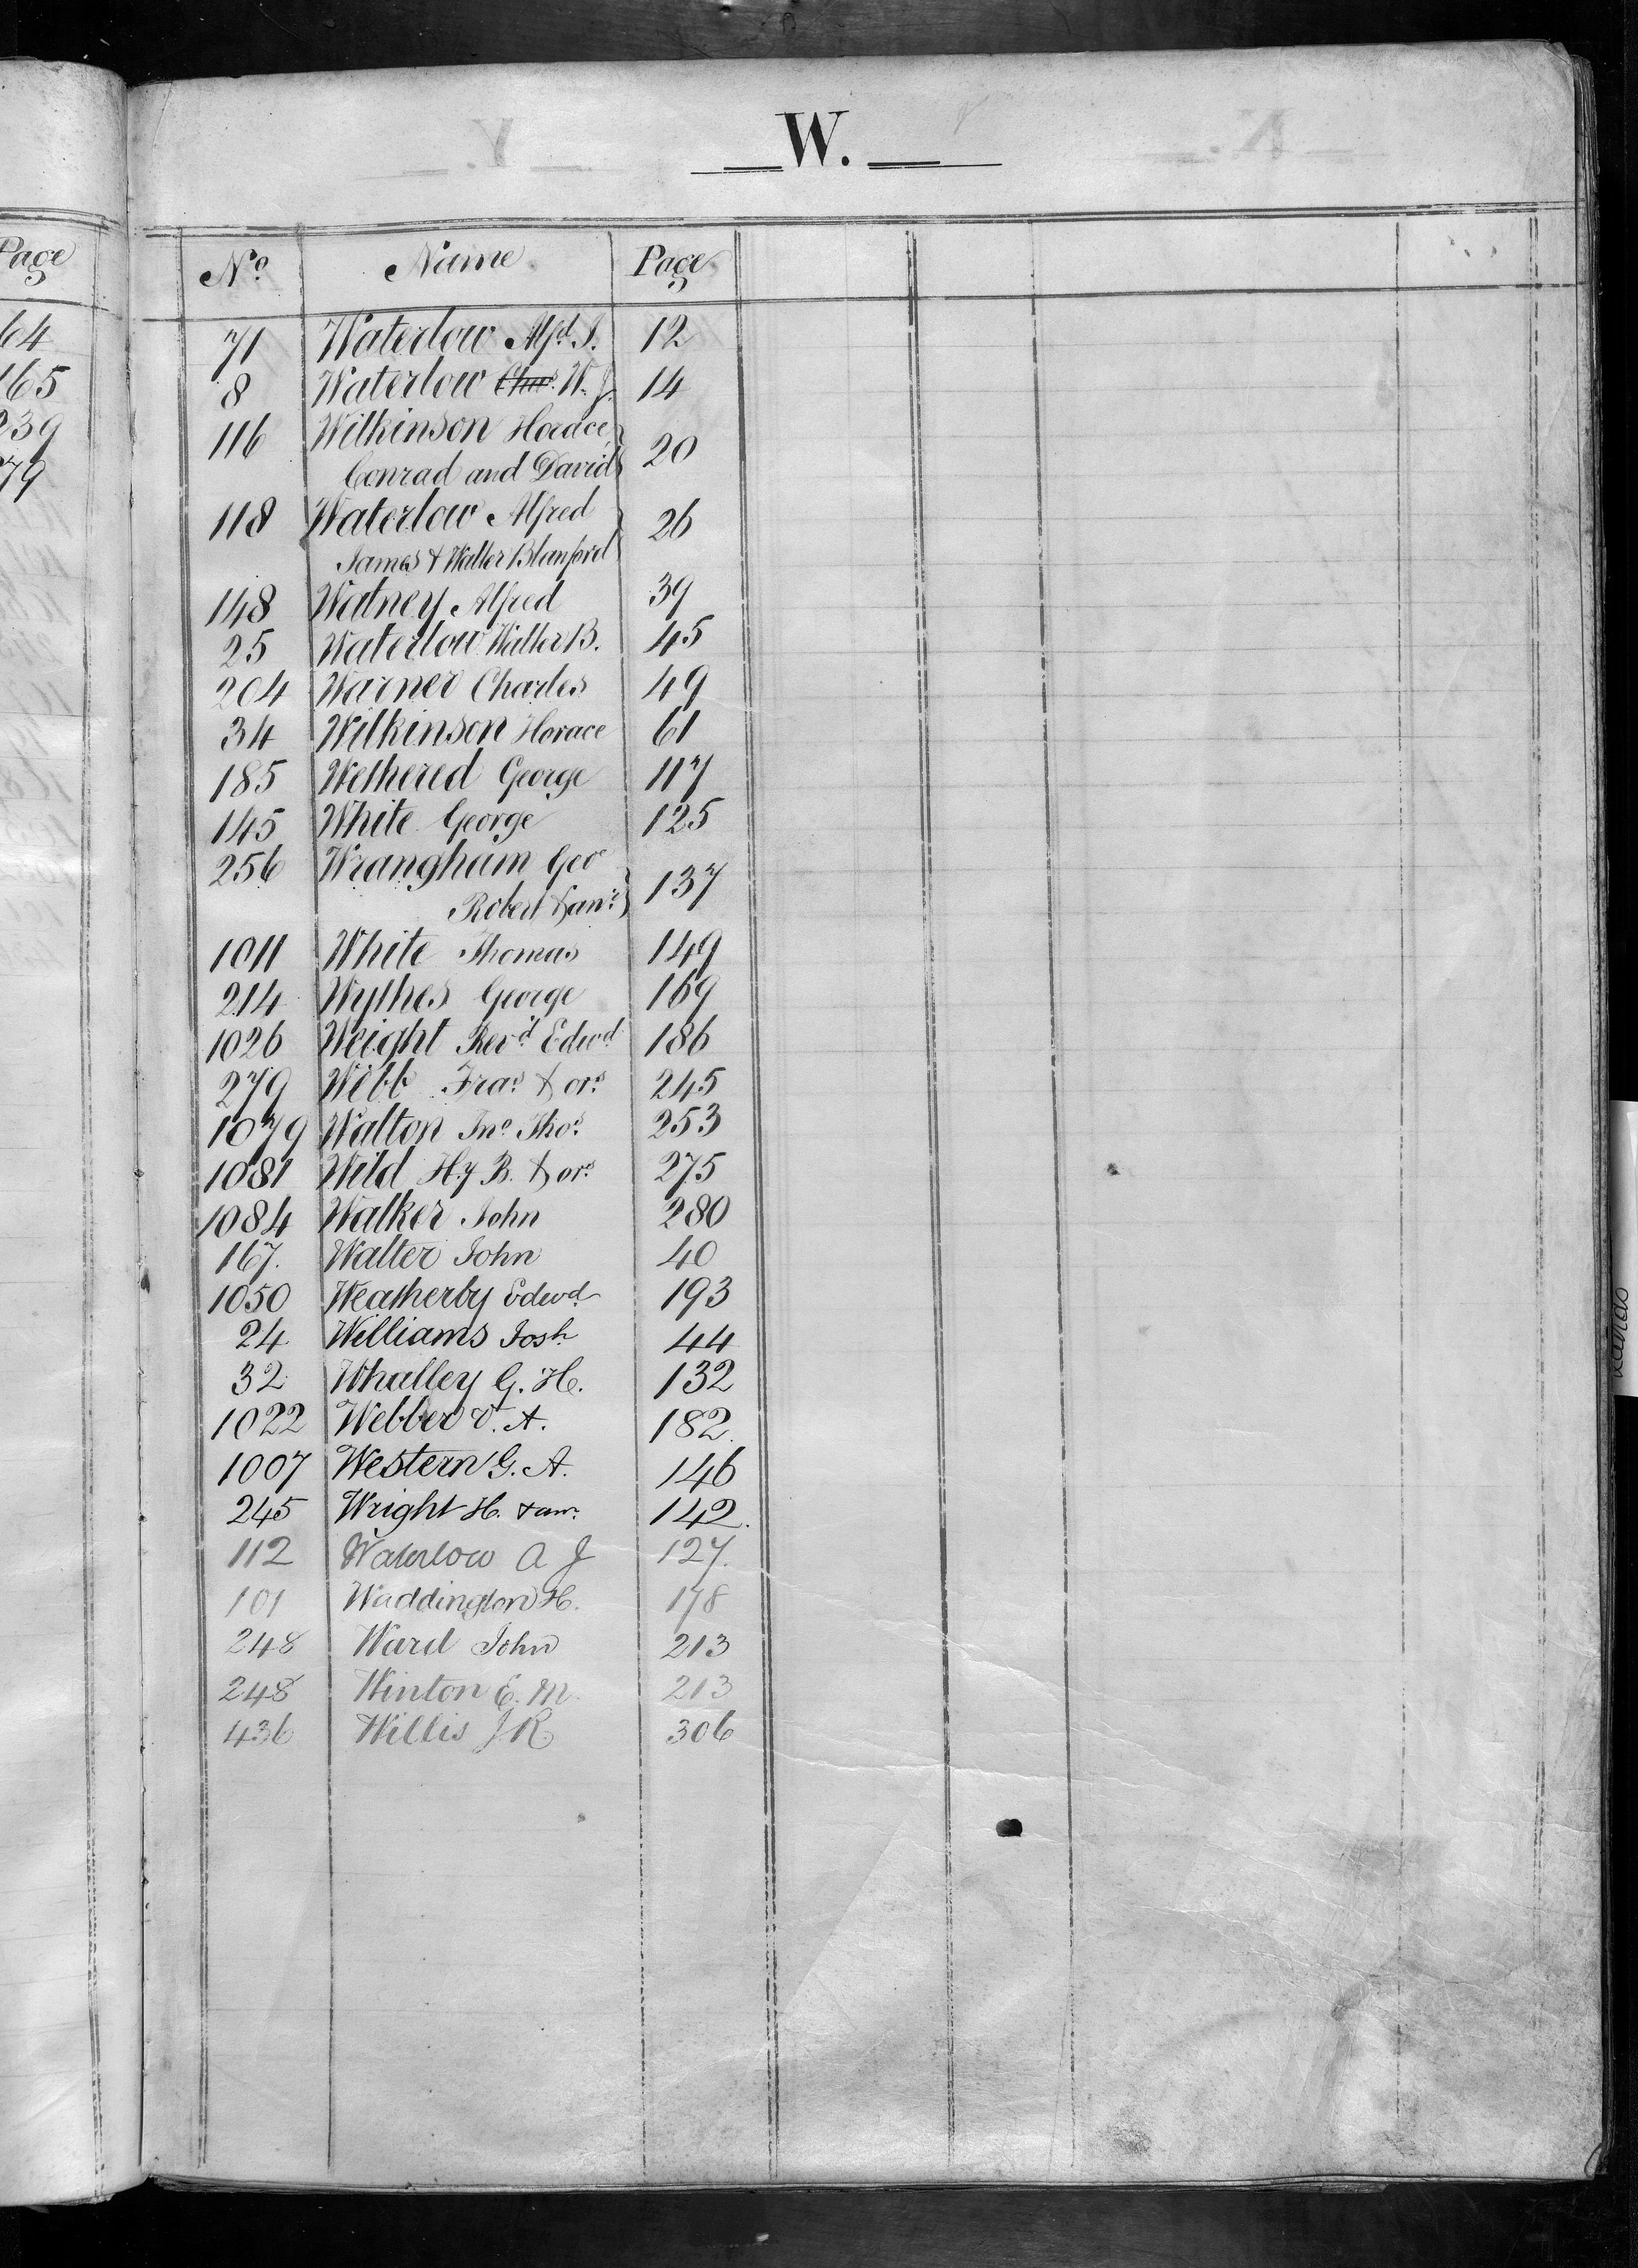 W.
Page
64
165
239
79
No. Name Page
71 Waterlow Alfd. J. 12
8 Waterlow Chas. W. J. 14
116 Wilkinson Horace,
Conrad and David 20
118 Waterlow Alfred
James & Walter Blanford 26
148 Watney Alfred 39
25 Waterlow Walter B. 45
204 Warner Charles 49
34 Wilkinson Horace 61
185 Wethered George 117
145 White George 125
256 Wrangham Geo
Robert & anr. 137
1011 White Thomas 149
214 Wythes George 169
1026 Weight Revd Edwd 186
279 Webb Fras. & ors. 245
1079 Walton Jno. Thos. 253
1081 Wild Hy B. & ors. 275
1084 Walker John 280
167. Walter John 40
1050 Weatherby Edwd 193
24 Williams Josh 44
32 Whalley G. H. 132
1022 Webber V. A. 182.
1007 Western G. A. 146
245 Wright H. & anr. 142.
112 Waterlow A J 127.
101 Waddington H. 178
248 Ward John 213
248 Winton E. M. 213
436 Willis J R 306